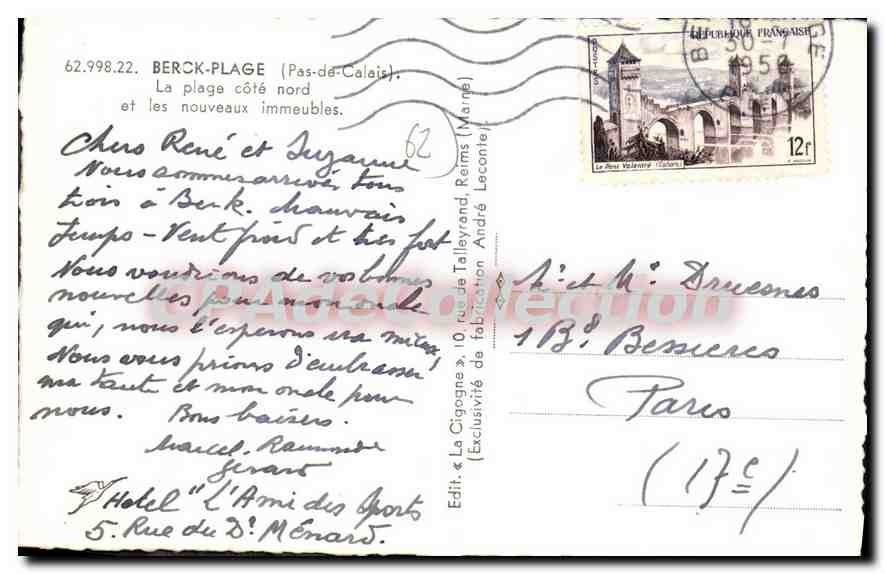 62.998.22. BERCK-PLAGE (Pas-de-Calais).
La plage côté nord
et les nouveaux immeubles.
62
Chers René et Suzanne
Nous sommes arrivés tous
trois à Berk. Mauvais
temps - Vent froid et très fort
Nous voudrions de vos bonnes
nouvelles pour mon oncle
qui, nous l'esperons va mieux,
Nous vous prions d'embrasser
ma tante et mon oncle pour
nous. Bons baisers.
Marcel. Raymonde
Gerard
Hotel "L'Ami des Sports
5. Rue du Dr Ménard.
Edit. « La Cigogne », 10, rue de Talleyrand, Reims (Marne)
(Exclusivité de fabrication André Leconte).
REPUBLIQUE FRANÇAISE
POSTES
Le Pont Valentré (Cahors)
12f
30-7
1956
Mr et Me Drucones
1 Bd. Bessieres
Paris
(17e)
CPA de Collection